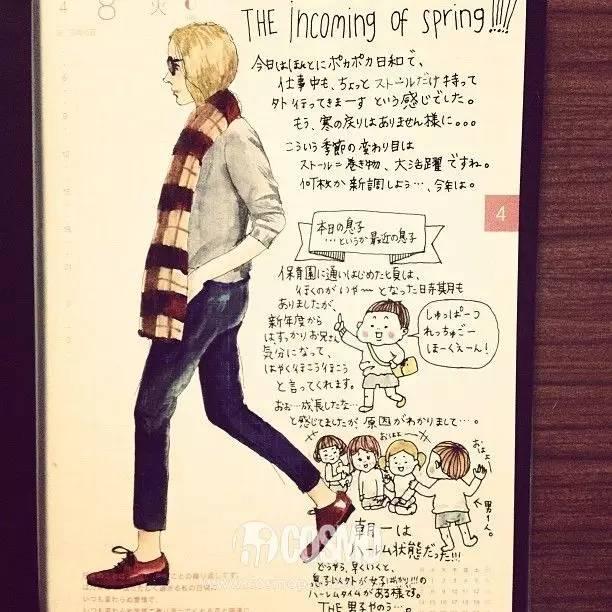 4/8 火
THE incoming of spring!!!!!
今日はほんとにポカポカ日和で、
仕事中も、ちょっとストールだけ持って
外行ってきまーす という感じでした。
もう、寒の戻りはありません様に。。。
こういう季節の変わり目は
ストール＝巻き物、大活躍ですね。
何枚か新調しよう…、今年は。
4
本日の息子
…というか最近の息子
保育園に通いはじめた頃は、
行くのがいや〜 となった時期も
ありましたが、
新年度から
はすっかりお兄さん
気分になって、
はやく行こう行こう
と言ってくれます。
おお…成長したな…
と感じてましたが、原因がわかりまして…。
しゅっぱーつ
れっちゅごー
ほーくえーん!
おはよー
おはよ
男1人。
朝一は
ハーレム状態だった!!!
どうやら、早くいくと、
息子以外が女子ばかり!!!の
ハーレムタイムがある様です。
THE 男子やのう…。
COSMO